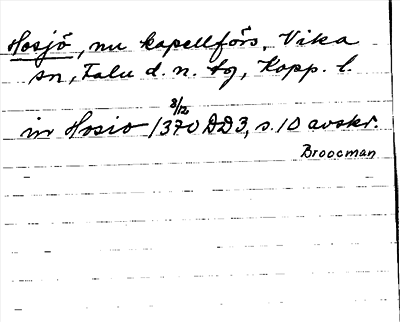 Hosjö, nu kapellförs., Vika
sn, Falu d. n. tg, Kopp. l.
in Hosio 1370 8/12 DD3, s. 10 avskr.
Broocman